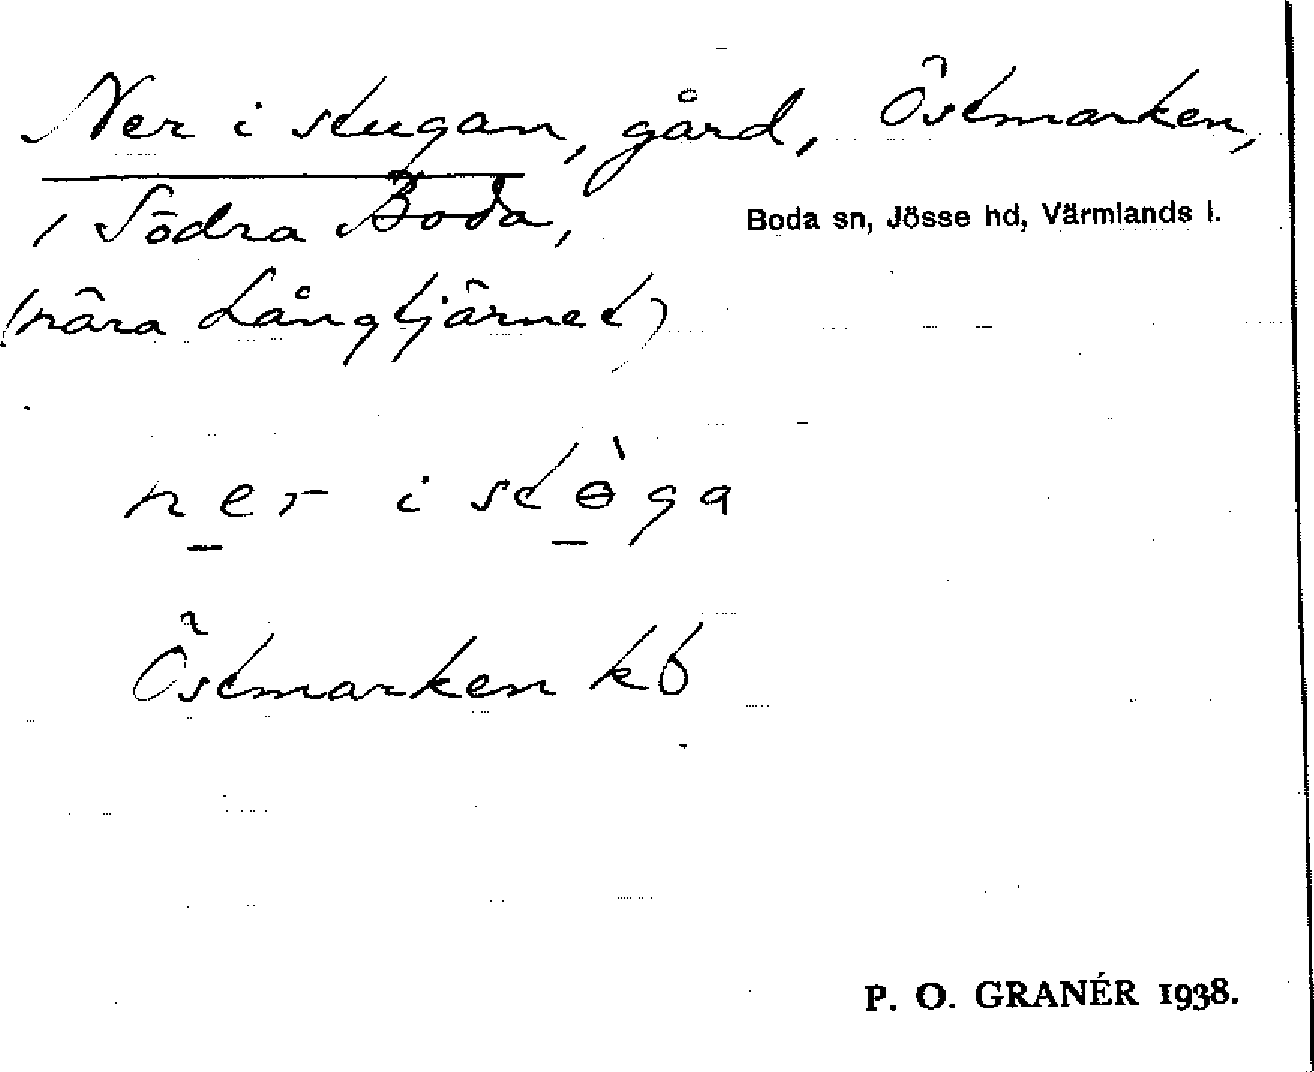 Ner i stugan, gård, Östmarken,
i Södra Boda,
Boda sn, Jösse hd, Värmlands l.
(nära Långtjärnet)
ner i stɵ̀ga
Östmarken kb
P. O. GRANÉR 1938.